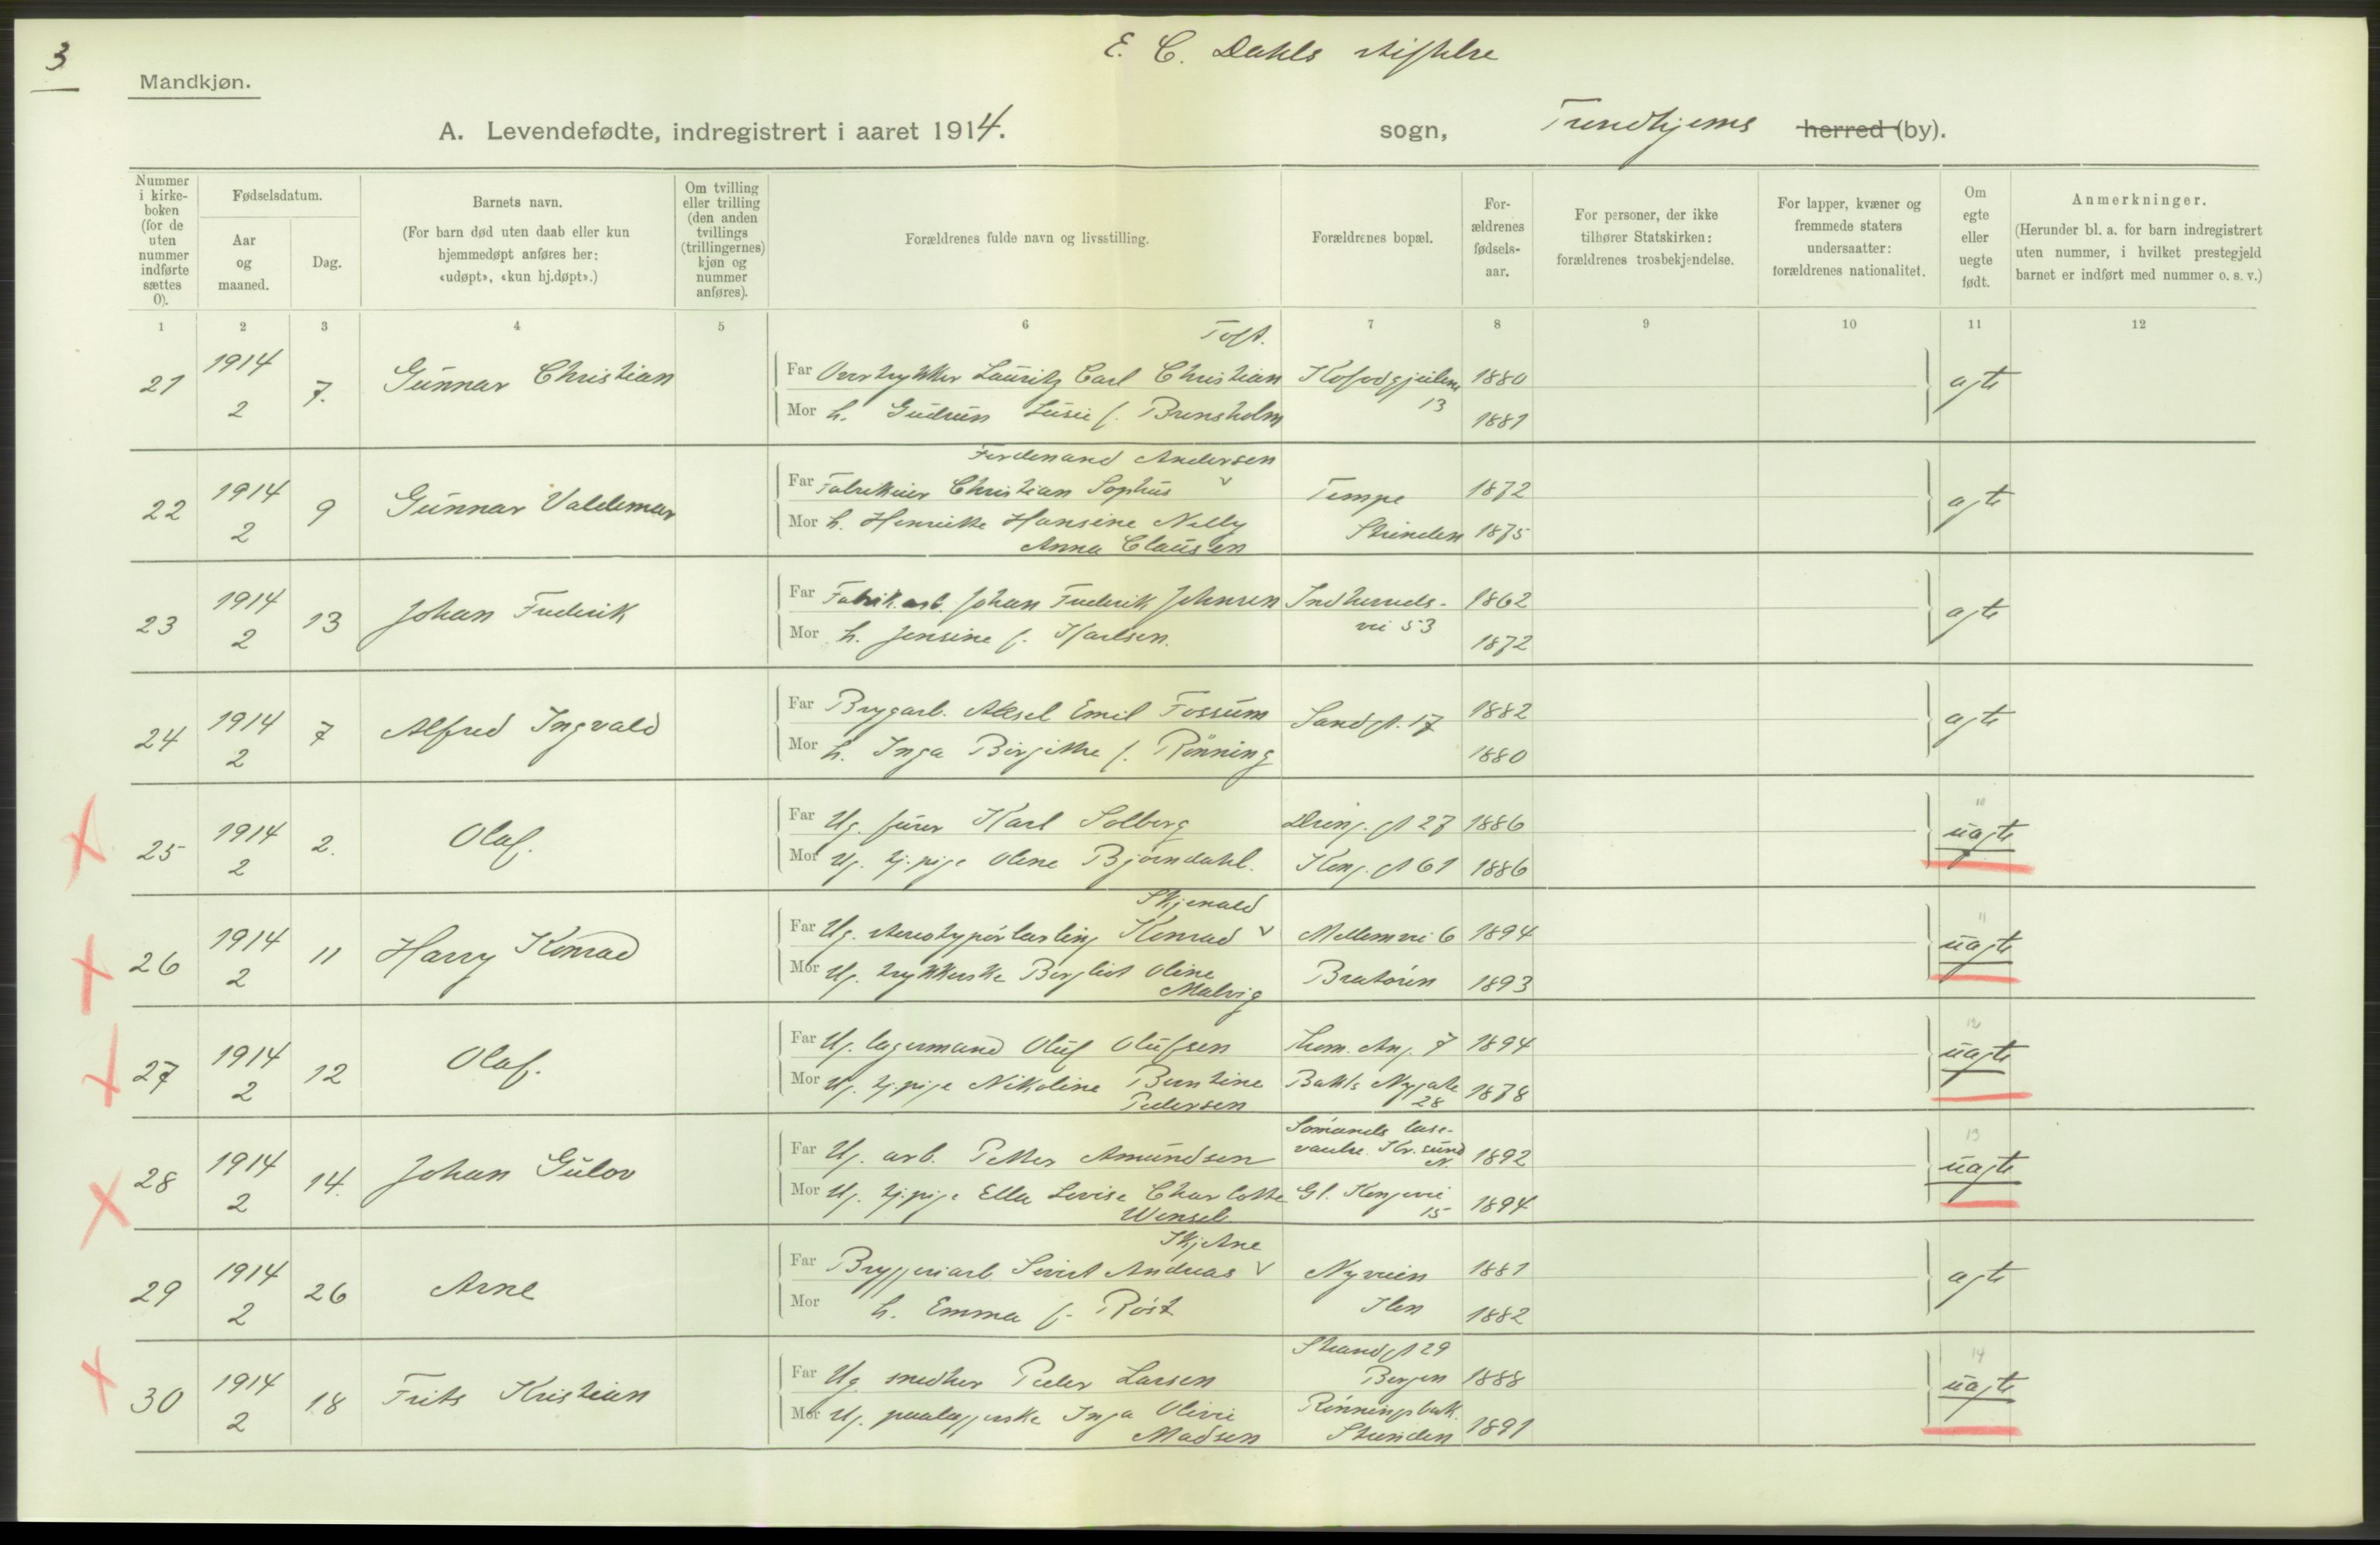 3
E. C. Dahls stiftelse
Mandkjøn.
A. Levendefødte, indregistrert i aaret 1914.
sogn, Trondhjems herred (by).
Nummer i kirke-boken (for de uten nummer indførte sættes 0).
Fødselsdatum.
Aar og maaned.
Dag.
Barnets navn.
(For barn død uten daab eller kun hjemmedøpt anføres her: «udøpt», «kun hj.døpt».)
Om tvilling eller trilling (den anden tvillings (trillingernes) kjøn og nummer anføres).
Forældrenes fulde navn og livsstilling.
Forældrenes bopæl.
For-ældrenes fødsels-aar.
For personer, der ikke tilhører Statskirken: forældrenes trosbekjendelse.
For lapper, kvæner og fremmede staters undersaatter: forældrenes nationalitet.
Om egte eller uegte født.
Anmerkninger.
(Herunder bl. a. for barn indregistrert uten nummer, i hvilket prestegjeld barnet er indført med nummer o. s. v.)
1 2 3 4 5 6 7 8 9 10 11 12
Toft.
21 1914 2 7. Gunnar Christian Far Overtrykker Lauritz Carl Christian 1880 ægte
13
Mor h. Gudrun Lusie f. Brunsholm 1881
Ferdenand Andersen
22 1914 2 9 Gunnar Valdemar Far Fabrikeier Christian Sophus v Tempe 1872 ægte
Mor h. Henrikke Hansine Nelly Strinden 1875
Anna Clausen
23 1914 2 13 Johan Frederik Far Fabrik.arb. Johan Frederik Johnsen Indherreds- 1862 ægte
vei 53
Mor h. Jensine f. Karlsen. 1872
24 1914 2 7 Alfred Ingvald Far Brygarb. Aksel Emil Fossum Sandgt. 17 1882 ægte
Mor h. Inga Birgitthe f. Rönning 1880
10
25 1914 2 2. Olaf. Far Ug. furer Karl Solberg Dron. gt 27 1886 uægte
Mor Ug. tj.pige Olene Bjørndahl. Kong. gt 61 1886
Skjenald
11
26 1914 2 11 Harry Konrad Far Ug. stereotypörlærling Konrad v Mellemvei 6 1894 uægte
Mor Ug. trykkerske Bergliot Oline Bratören 1893
Malvig
12
27 1914 2 12 Olaf. Far Ug. lagermand Oluf Olufsen Thom. Ang. 7 1894 uægte
Mor Ug. tj.pige Nikoline Berntine Bakls Nygate 1878
Pedersen 28
Sömands læse-
13
28 1914 2 14. Johan Gulov Far Ug. arb. Petter Amundsen værelse. Kr.sund N. 1892 uægte
Mor Ug. tj.pige Ella Lovise Charlotte Gl. Kongevei 15 1894
Wensel
Skjetne
29 1914 2 26 Arne Far Bryggeriarb. Sivert Andreas v Nyveien 1881 ægte
Mor h. Emma f. Röst Ilen 1882
Strandgt 29
14
30 1914 2 18 Frits Kristian Far Ug. smedher Peder Larsen Bergen 1888 uægte
Mor Ug. paalæggerske Inga Olivie Rönningsbak. 1891
Madsen Strinden